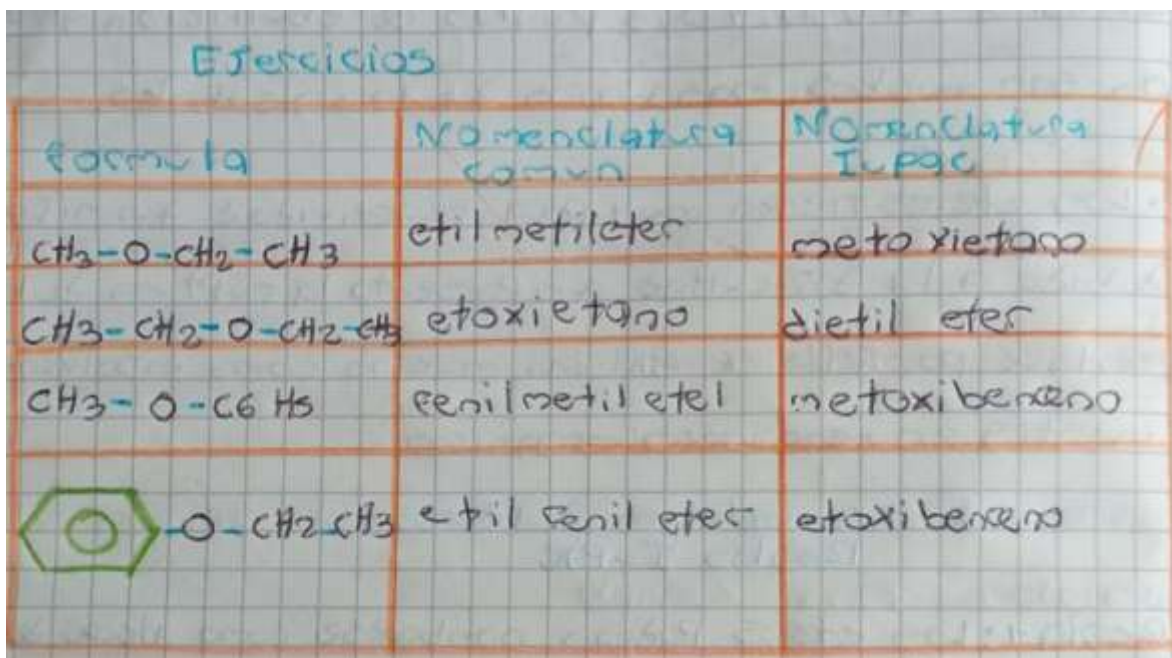 Ejercicios
formula
Nomenclatura
comun
Nomenclatura
Iupac
CH3-O-CH2-CH3
etilmetileter
metoxietano
CH3-CH2-O-CH2-CH3
etoxietano
dietil eter
CH3-O-C6H5
fenilmetil etel
metoxibenzeno
-O-CH2-CH3
etil fenil eter
etoxibenzeno